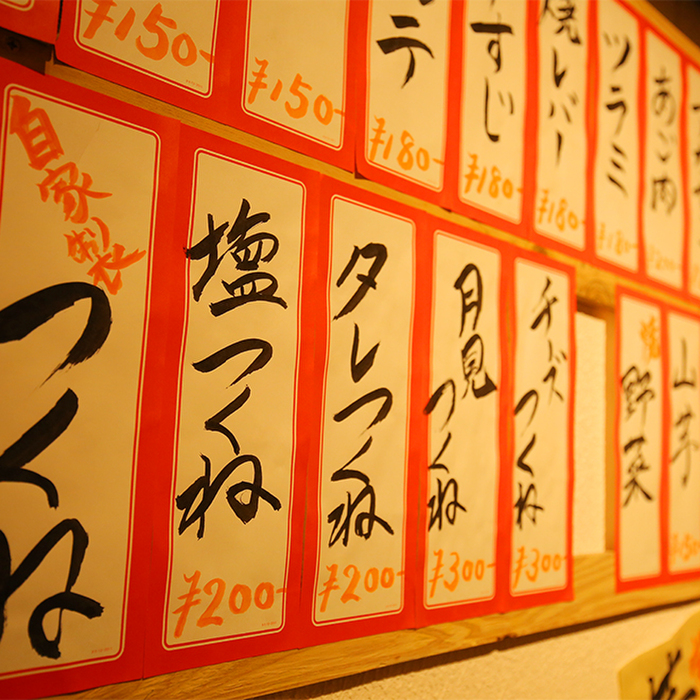 ¥150-
¥150-
テ
¥180-
すじ
¥180-
焼レバー
¥180-
ツラミ
¥180-
あご肉
自家製
つくね
塩つくね
¥200-
タレつくね
¥200-
月見つくね
¥300-
チーズつくね
¥300-
焼野菜
山芋